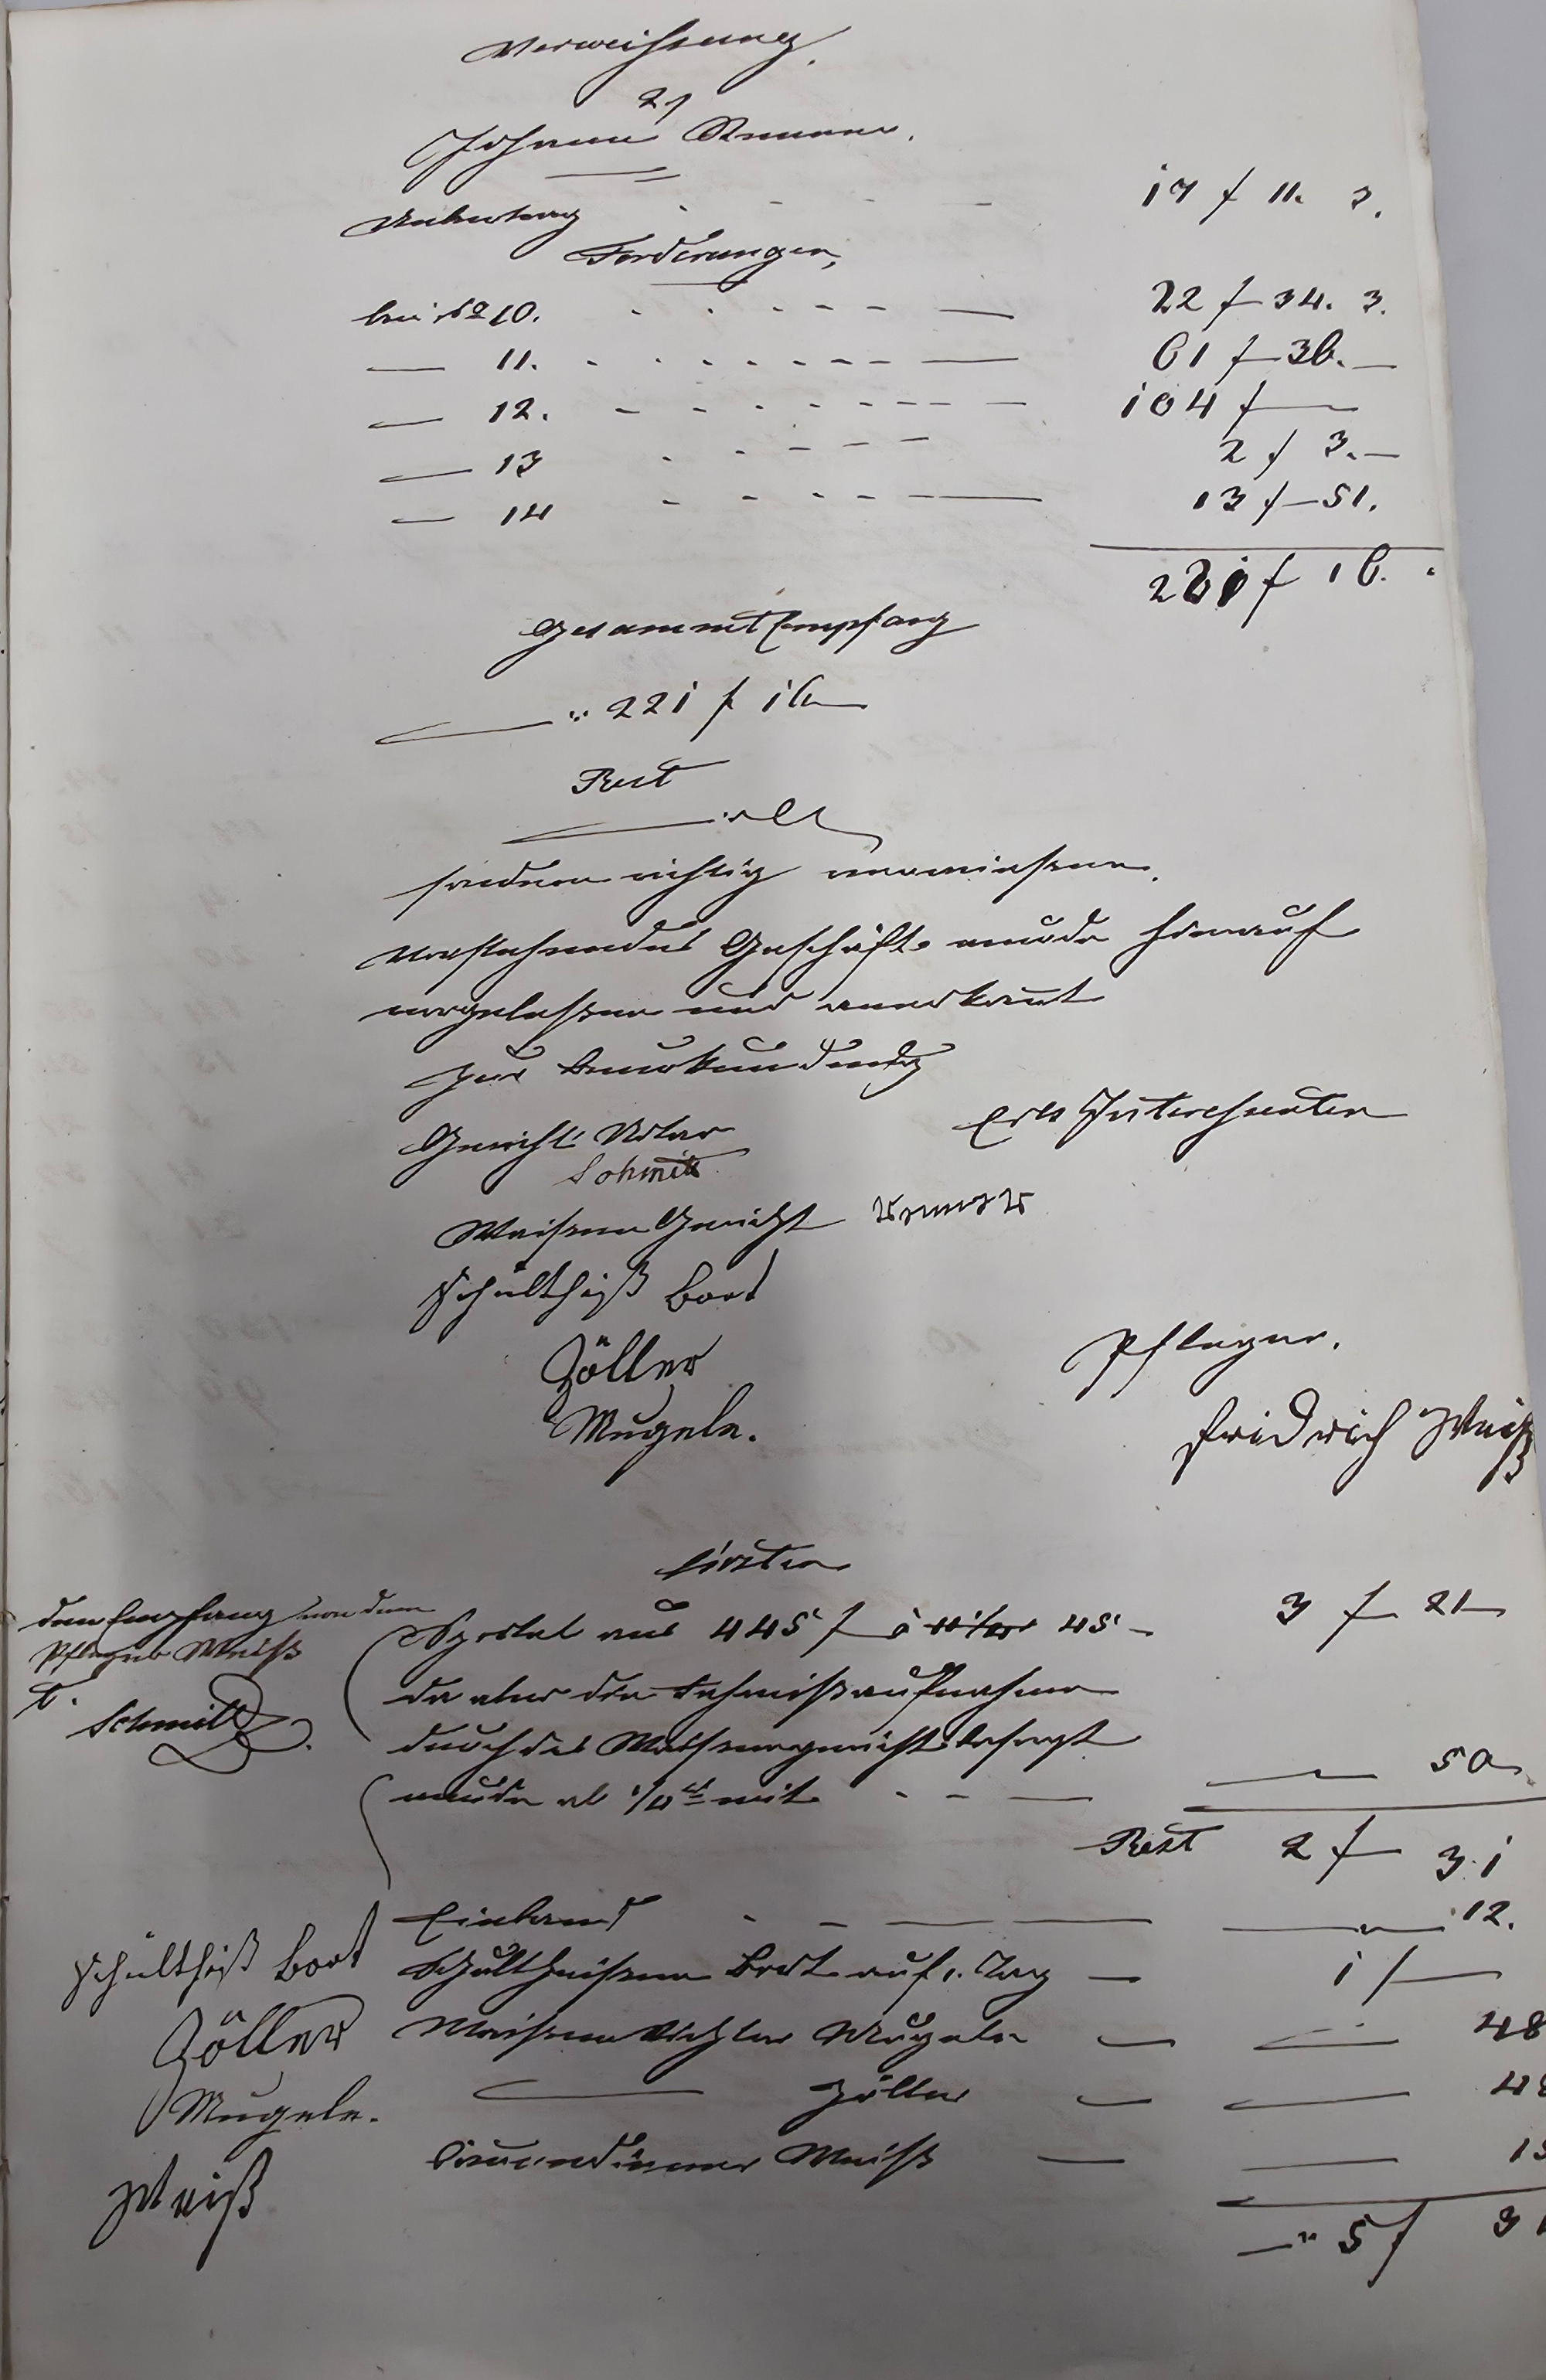 Verweisung.
2,
Johann
Uebertrag - - - - 17 f 11. 3.
Forderungen,
bei No 10. - - - - 22 f 34. 3.
— 11. - - - - 61 f 36. —
— 12. - - - - 104 f —
— 13 - - - - 2 f 3. —
— 14 - - - - 13 f 51.
221 f 16.
Gesammt Empfang
— " 221 f 16 —
Rest
sondern richtig verwiesen.
Vorstehendes Geschäft wurde hierauf
vorgelesen und anerkannt
Zur Beurkundung
Gerichts Notar
Schmitt
Erbs Interessenten
Waisen Gericht
Schultheiß Bort
Zöller
Mugele.
Pfleger.
Fridrich Weiß
Kosten
den Empfang von dem
Pfleger Weiß
t.
Schmitt
Sportel aus 445 f à 45 — 3 f 21 —
da aber die Fahrnißaufnahme
durch das Waisengericht besorgt
wurde ab 1/4tl mit - - — 50
Rest 2 f 31
Einband - - — 12.
Schultheißen Bort auf 1. Tag — 1 f —
Waisen Richter Mugele — — 48
— Zöller — — 48
Weiß — —
— " 5 f
Schultheiß Bort
Zöller
Mugele.
Weiß